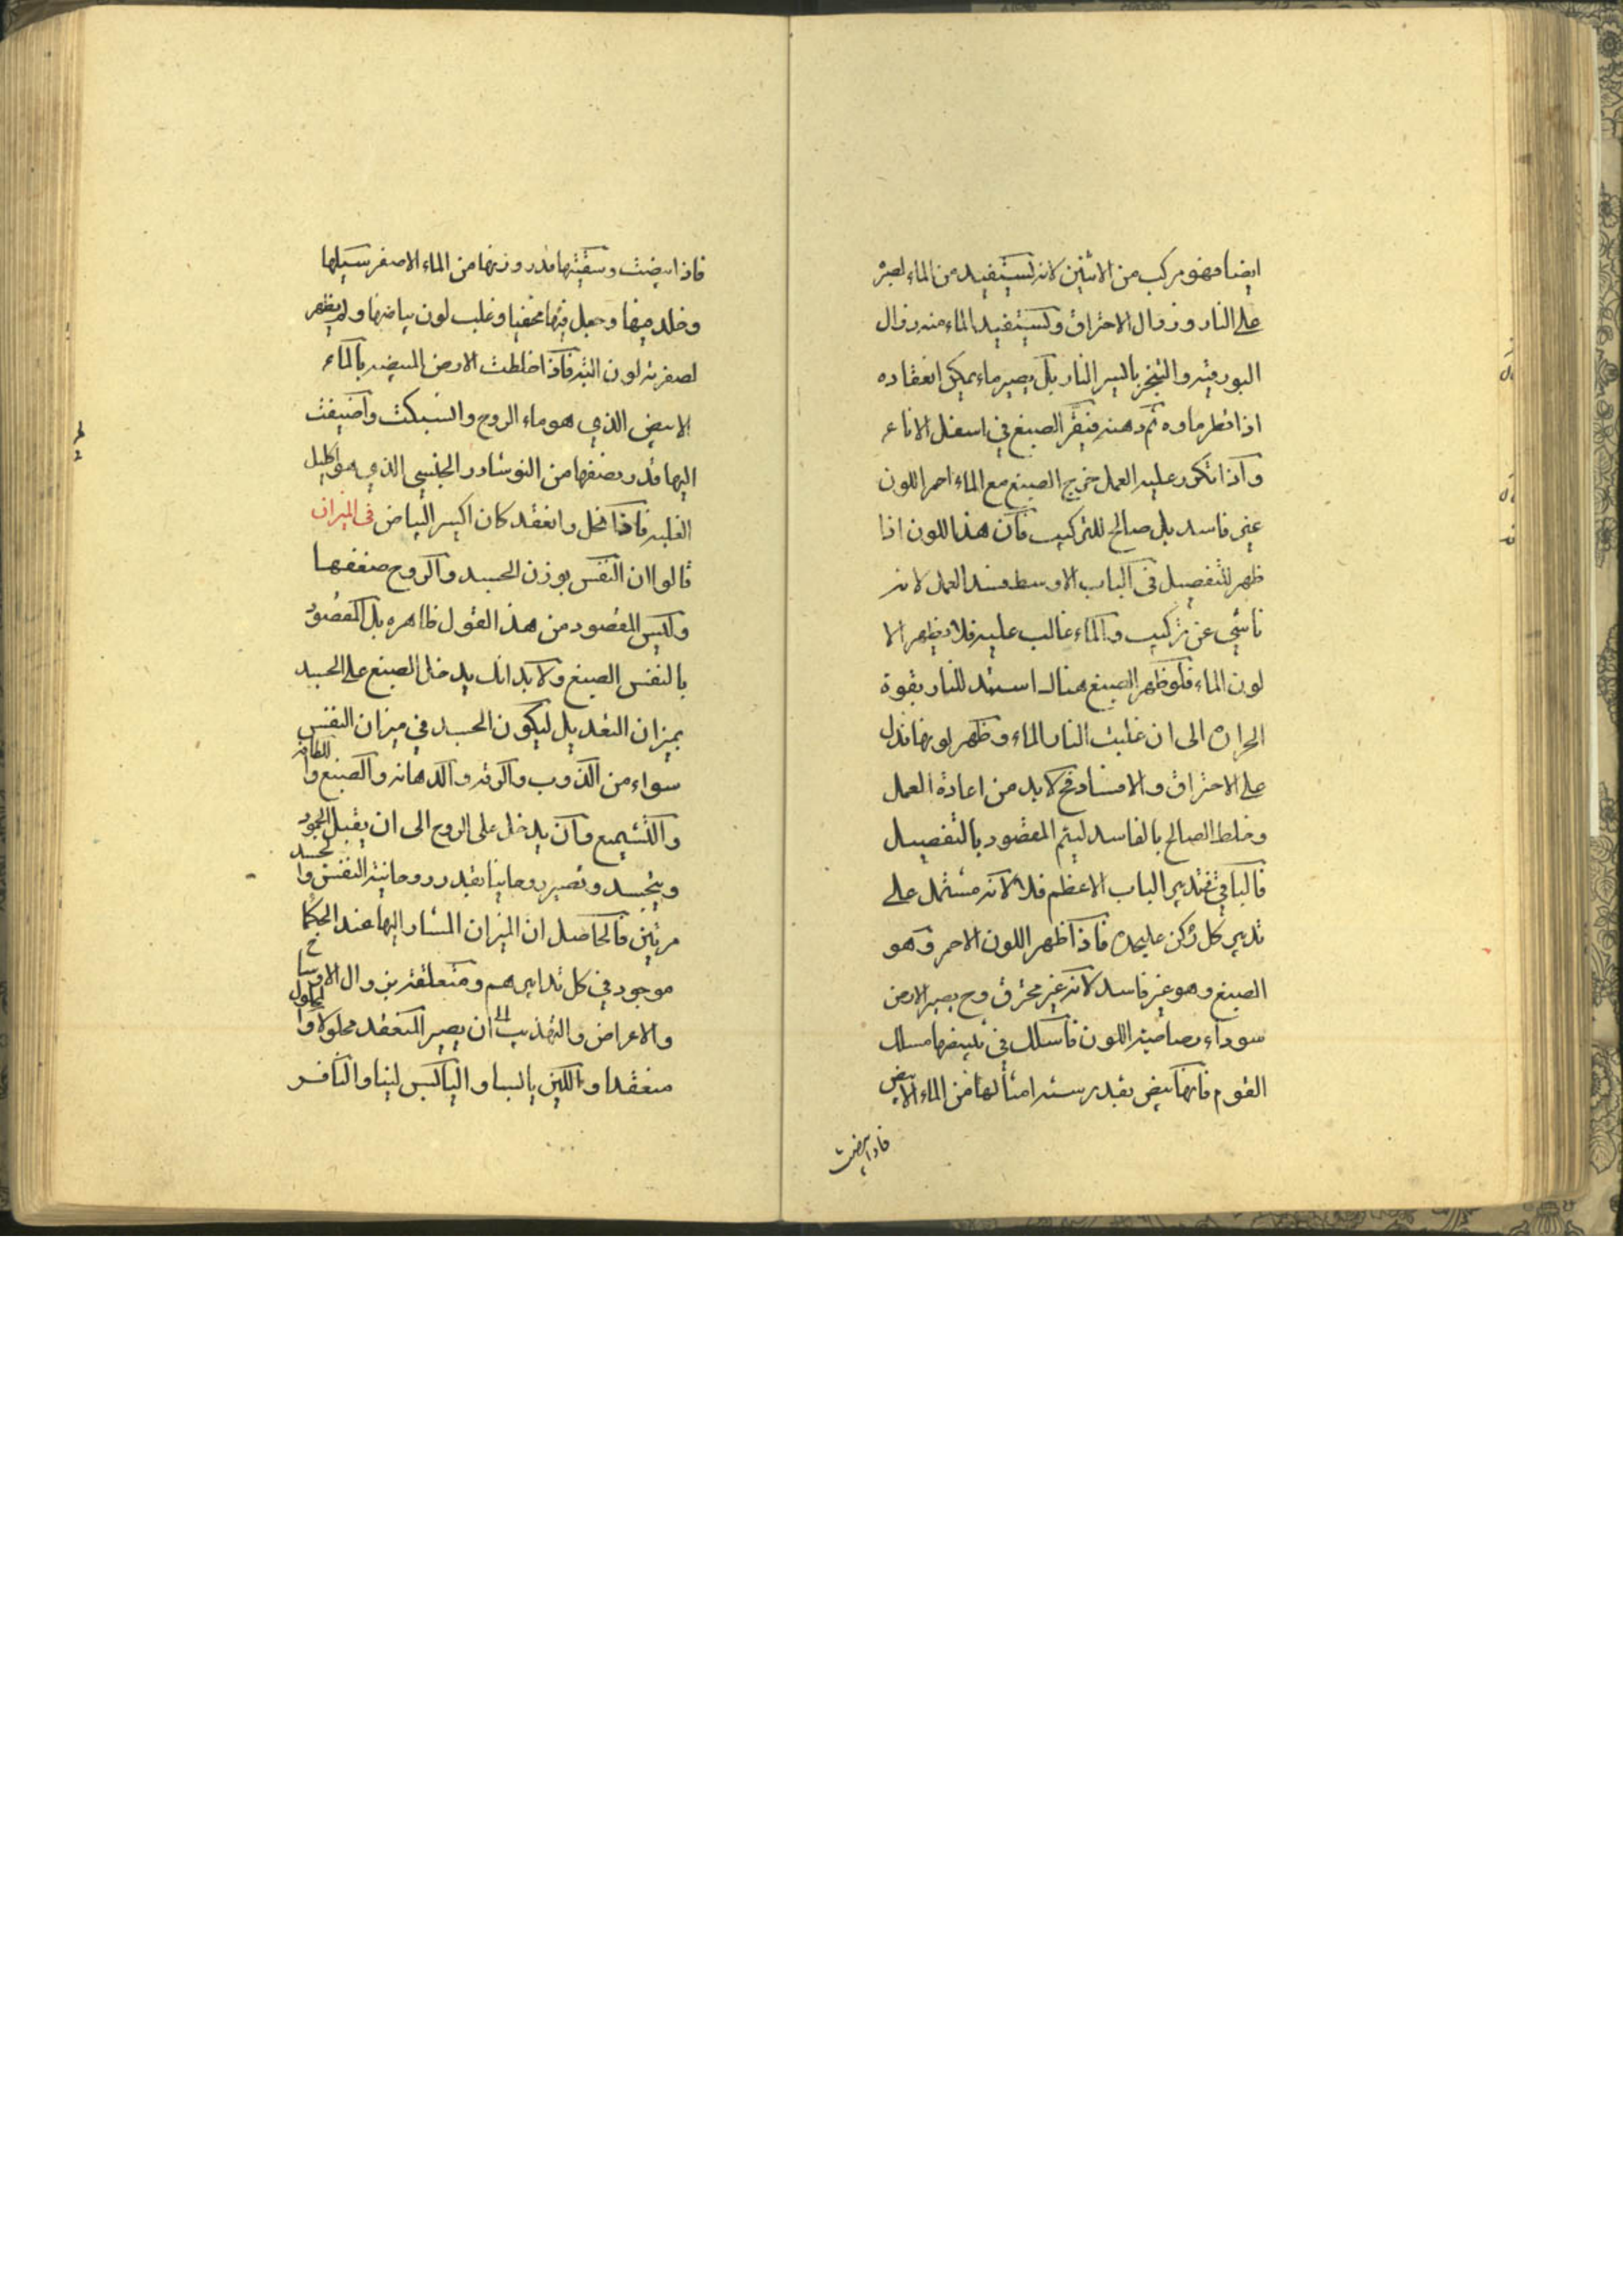 ايضا فهو مركب من الاثنين لانه يستفيد من الماء الصبر
على النار وزوال الاحتراق ويستفيد الماء منه زوال
البورقية والتبخر باليسير النار بل يصير ماء يمكن انعقاده
اذا قطر ماوه ثم دهنه فيقر الصبغ في اسفل الاناء
واذا تكرر عليه العمل خرج الصبغ مع الماء احمر اللون
غير فاسد بل صالح للتركيب فان هذا اللون اذا
ظهر للتفصيل في الباب الاوسط فسد العمل لانه
ناشي عن تركيب والماء غالب عليه فلا يظهر الا
لون الماء فلو ظهر الصبغ هنالك استند للنار بقوة
الحرارة الى ان غلبت النار الماء وظهر لونها فدل
على الاحتراق والافساد فح لابد من اعادة العمل
وخلط الصالح بالفاسد ليتم المقصود بالتفصيل
فالباقي تدبير الباب الاعظم فلا لانه مشتمل على
تدبير كل ركن عليحده فاذا ظهر اللون الاحمر وهو
الصبغ وهو غير فاسد لانه غير محترق وح يصير الارض
سوداء رصاصية اللون فاسلك في تبييضها مسلك
القوم فانها تبيض بقدر ستة امثالها من الماء الابيض
فاذا ابيضت
فاذا ابيضت وسقيتها قدر وزنها من الماء الاصفر سيلها
وخلد فيها وجعل فيها مخفيا وغلب لون بياضها ولم يظهر
لصفرته لون البته فاذا خلطت الارض المبيضه بالماء
الابيض الذي هو ماء الروح وانسبكت واضيفت
اليها قدر نصفها من النوشادر الجنسي الذي هو اكليل
الغلبه فاذا انحل وانعقد كان اكسير البياض في الميزان
قالوا ان النفس بوزن الجسد والروح ضعفها
وليس المقصود من هذا القول ظاهره بل المقصود
بالنفس الصبغ ولا بد انك يدخل الصبغ على الجسد
بميزان التعديل ليكون الجسد في ميزان النفس
سواء من الذوب والرقه والدهانه والصبغ واللطافه
والتشميع وان يدخل على الروح الى ان يقبل الجمود
ويتجسد وتصير روحانيا بقدر روحانية النفس والجسد
مرتين فالحاصل ان الميزان المشار اليها عند الحكما
موجود في كل تدابيرهم ومتعلقة بزوال الاوساخ
والاعراض والتهذيب الى ان يصير المنعقد محلولا والمحلول
منعقدا واللين يابسا واليابس لينا والنافر